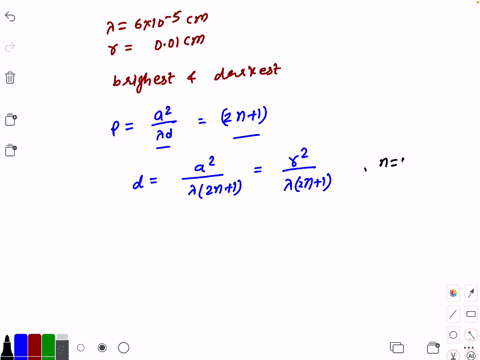 λ = 6×10⁻⁵ cm
r = 0.01 cm
brightest & darkest
P = a²/λd = (2n+1)
d = a²/λ(2n+1) = r²/λ(2n+1) , n=